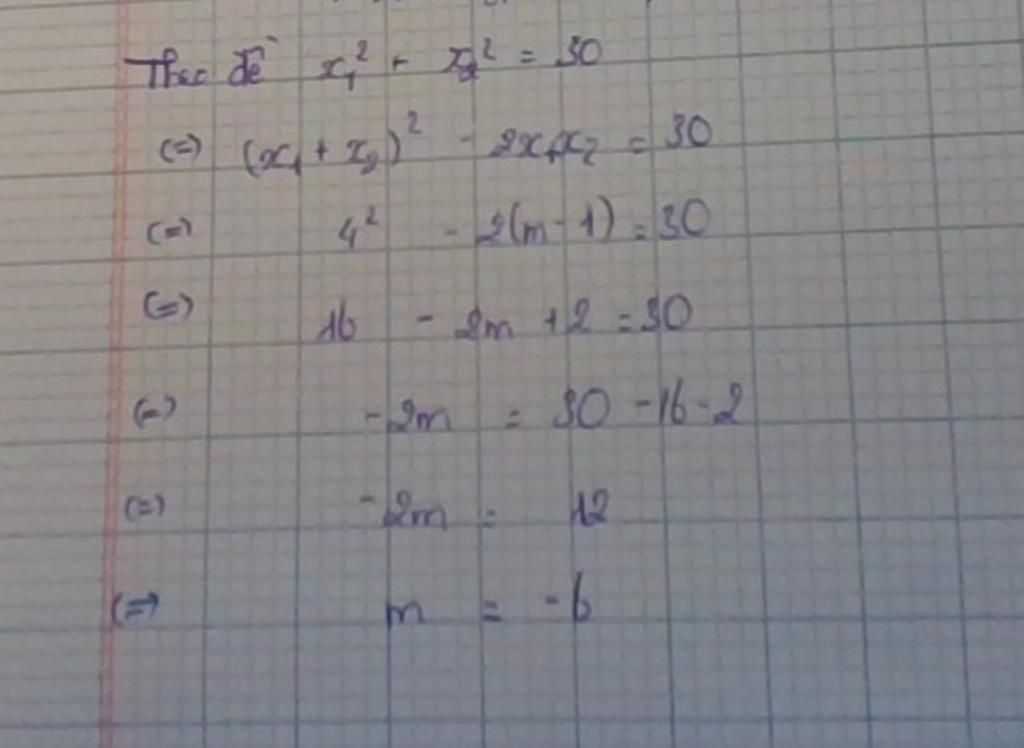 Theo đề x₁² + x₂² = 30
(=) (x₁ + x₂)² - 2x₁x₂ = 30
(=) 4² - 2(m - 1) = 30
(=) 16 - 2m + 2 = 30
(=) - 2m = 30 - 16 - 2
(=) - 2m = 12
(=) m = - 6